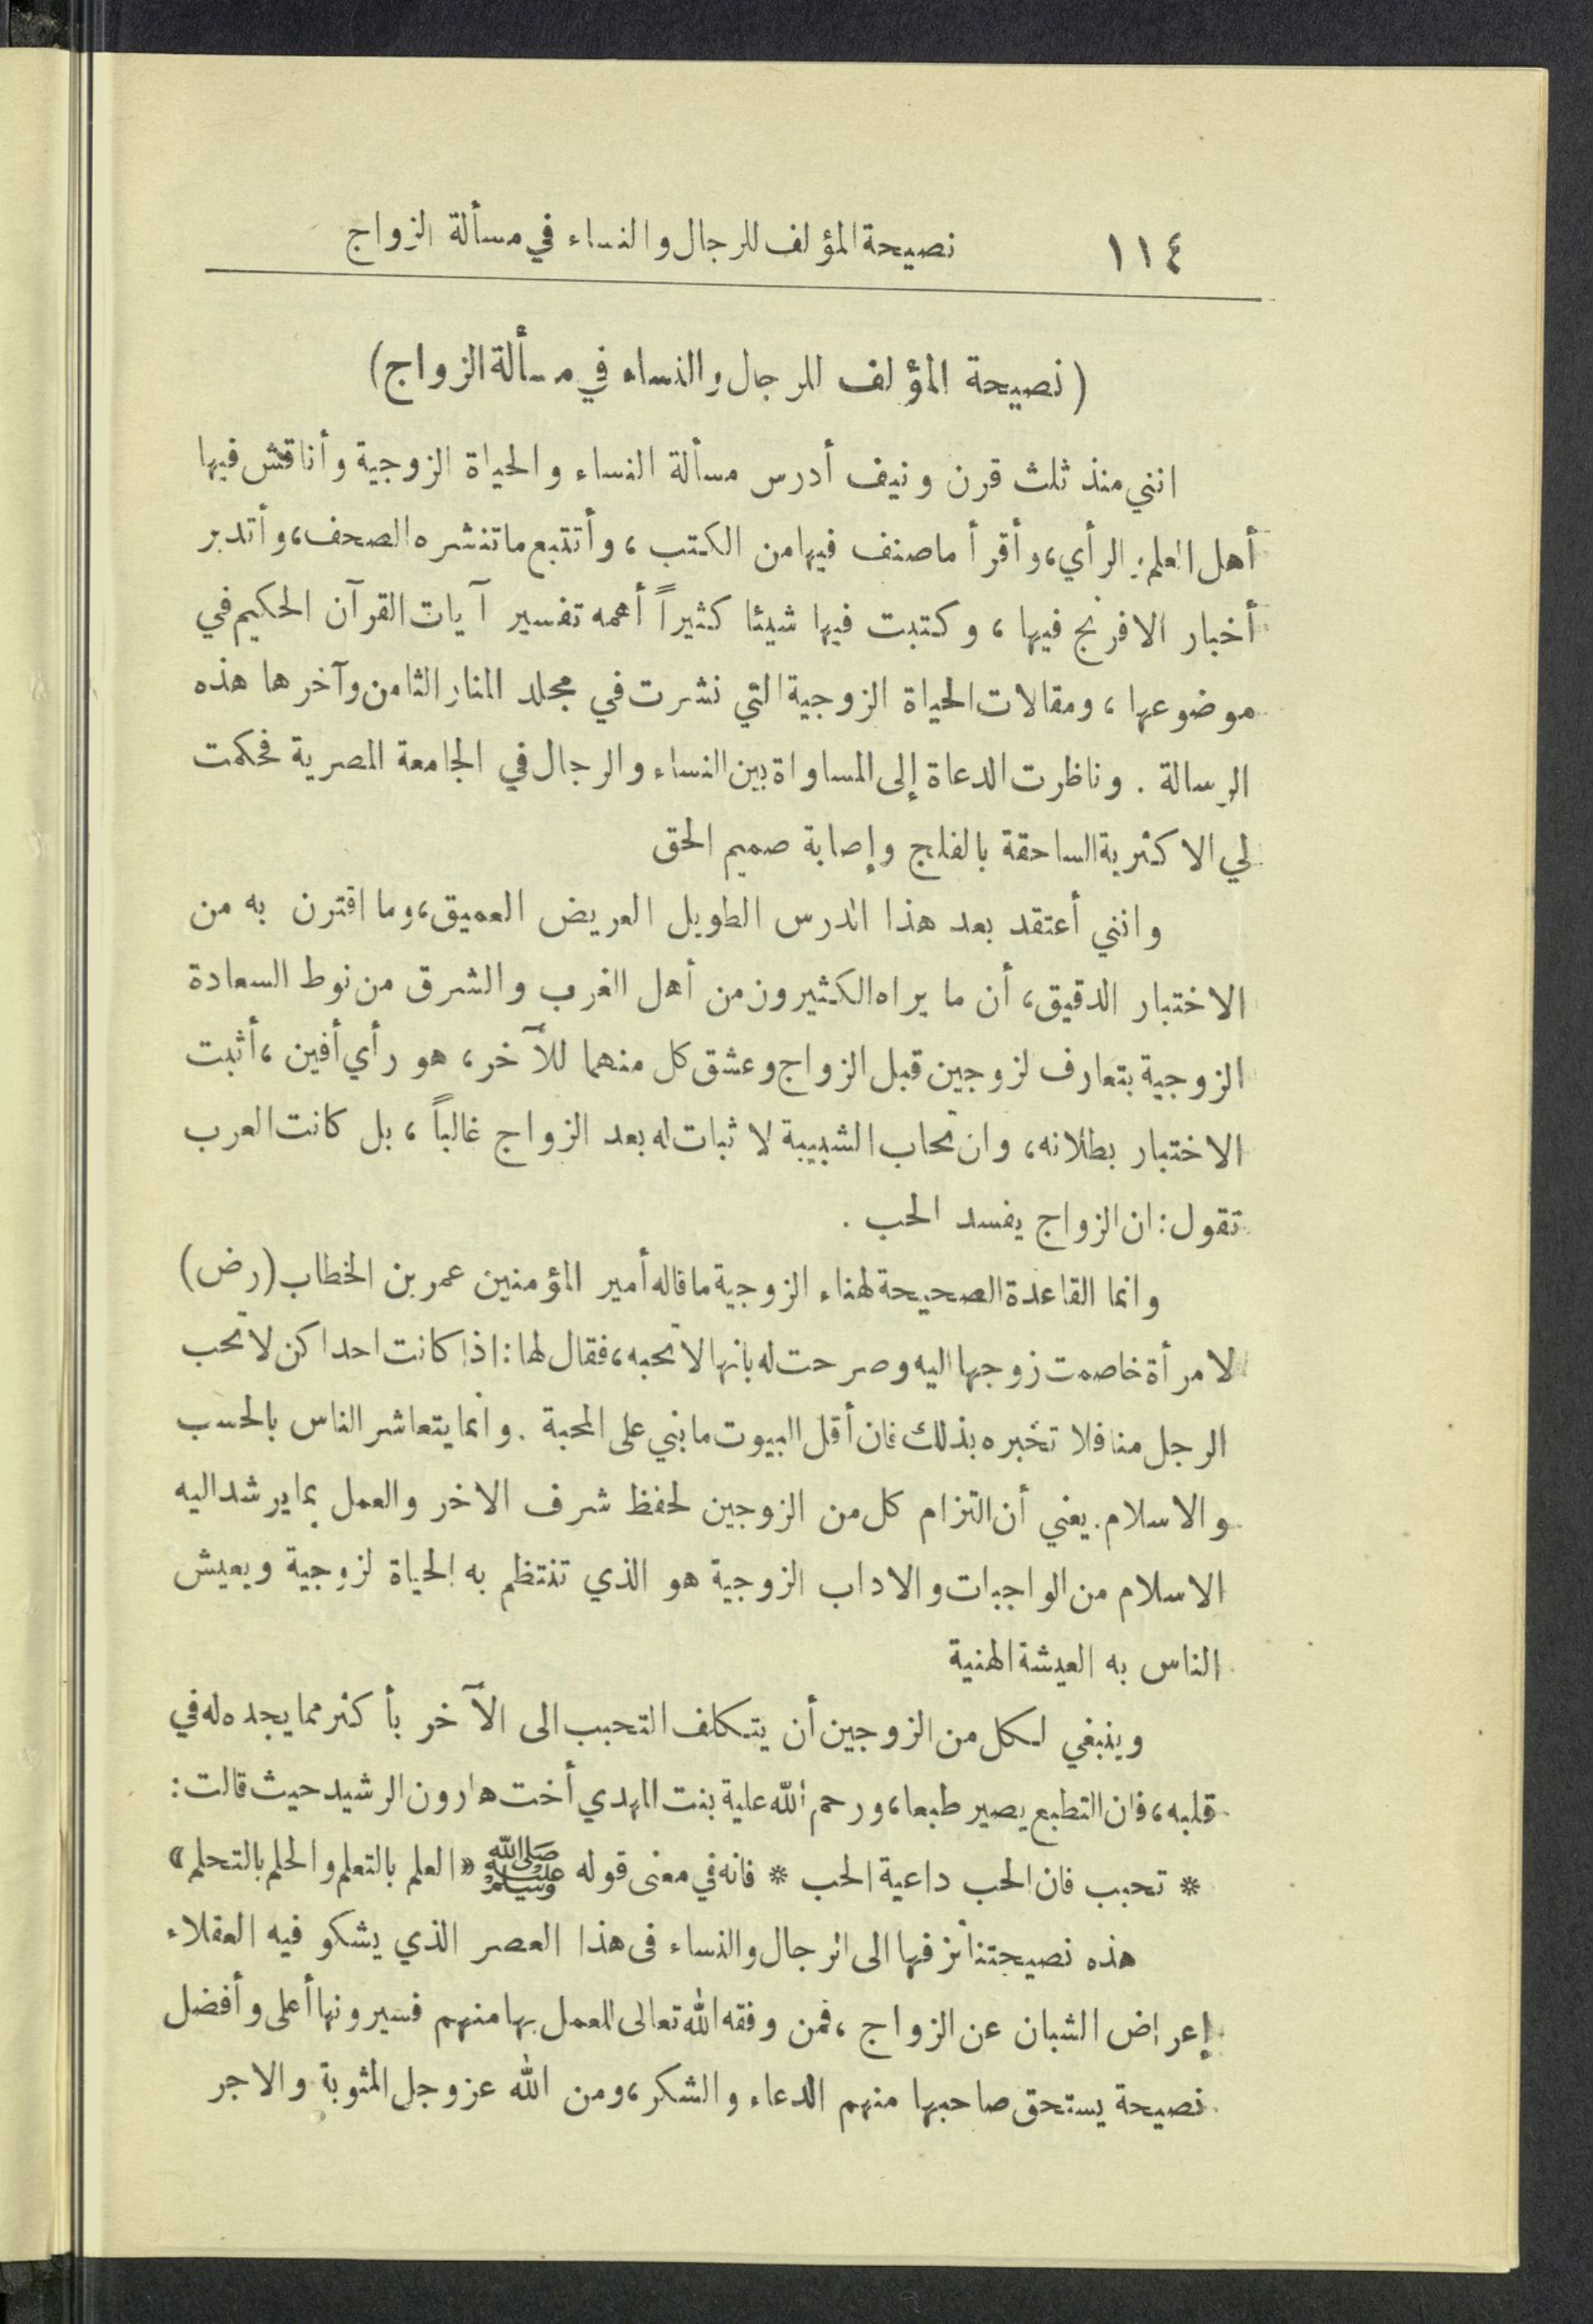 ١١٤ نصيحة المؤلف للرجال والنساء في مسألة الزواج
(نصيحة المؤلف للرجال والنساء في مسألة الزواج)
انني منذ ثلث قرن ونيف أدرس مسألة النساء والحياة الزوجية وأناقش فيها
أهل العلم والرأي، وأقرأ ما صنف فيها من الكتب، وأتتبع ما تنشره الصحف، وأتدبر
أخبار الافرنج فيها، وكتبت فيها شيئا كثيراً أهمه تفسير آيات القرآن الحكيم في
موضوعها، ومقالات الحياة الزوجية التي نشرت في مجلد المنار الثامن وآخرها هذه
الرسالة. وناظرت الدعاة إلى المساواة بين النساء والرجال في الجامعة المصرية فحكمت
لي الاكثرية الساحقة بالفلج وإصابة صميم الحق
وانني أعتقد بعد هذا الدرس الطويل العريض العميق، وما اقترن به من
الاختبار الدقيق، أن ما يراه الكثيرون من أهل الغرب والشرق من نوط السعادة
الزوجية بتعارف لزوجين قبل الزواج وعشق كل منهما للآخر، هو رأي أفين، أثبت
الاختبار بطلانه، وان تحاب الشبيبة لا ثبات له بعد الزواج غالباً، بل كانت العرب
تقول: ان الزواج يفسد الحب.
وانما القاعدة الصحيحة لهناء الزوجية ما قاله أمير المؤمنين عمر بن الخطاب (رض)
لامرأة خاصمت زوجها اليه وصرحت له بانها لا تحبه، فقال لها: اذا كانت احداكن لا تحب
الرجل منا فلا تخبره بذلك فان أقل البيوت ما بني على المحبة. وانما يتعاشر الناس بالحسب
والاسلام. يعني أن التزام كل من الزوجين لحفظ شرف الاخر والعمل بما يرشد اليه
الاسلام من الواجبات والاداب الزوجية هو الذي تنتظم به الحياة لزوجية ويعيش
الناس به العيشة الهنية
وينبغي لكل من الزوجين أن يتكلف التحبب الى الآخر بأكثر مما يجده له في
قلبه، فان التطبع يصير طبعا، ورحم الله علية بنت المهدي أخت هارون الرشيد حيث قالت:
* تحبب فان الحب داعية الحب * فانه في معنى قوله ﷺ «العلم بالتعلم والحلم بالتحلم»
هذه نصيحتنا نزفها الى الرجال والنساء فى هذا العصر الذي يشكو فيه العقلاء
إعراض الشبان عن الزواج، فمن وفقه الله تعالى للعمل بها منهم فسيرونها أعلى وأفضل
نصيحة يستحق صاحبها منهم الدعاء والشكر، ومن الله عز وجل المثوبة والاجر